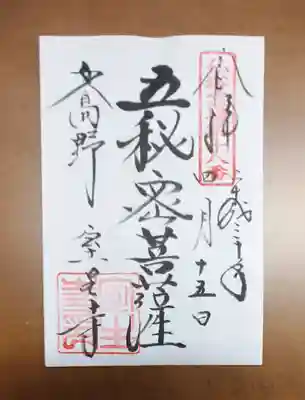 奉拝
平成三十年
四月十五日
五秘密菩薩
女高野 室生寺